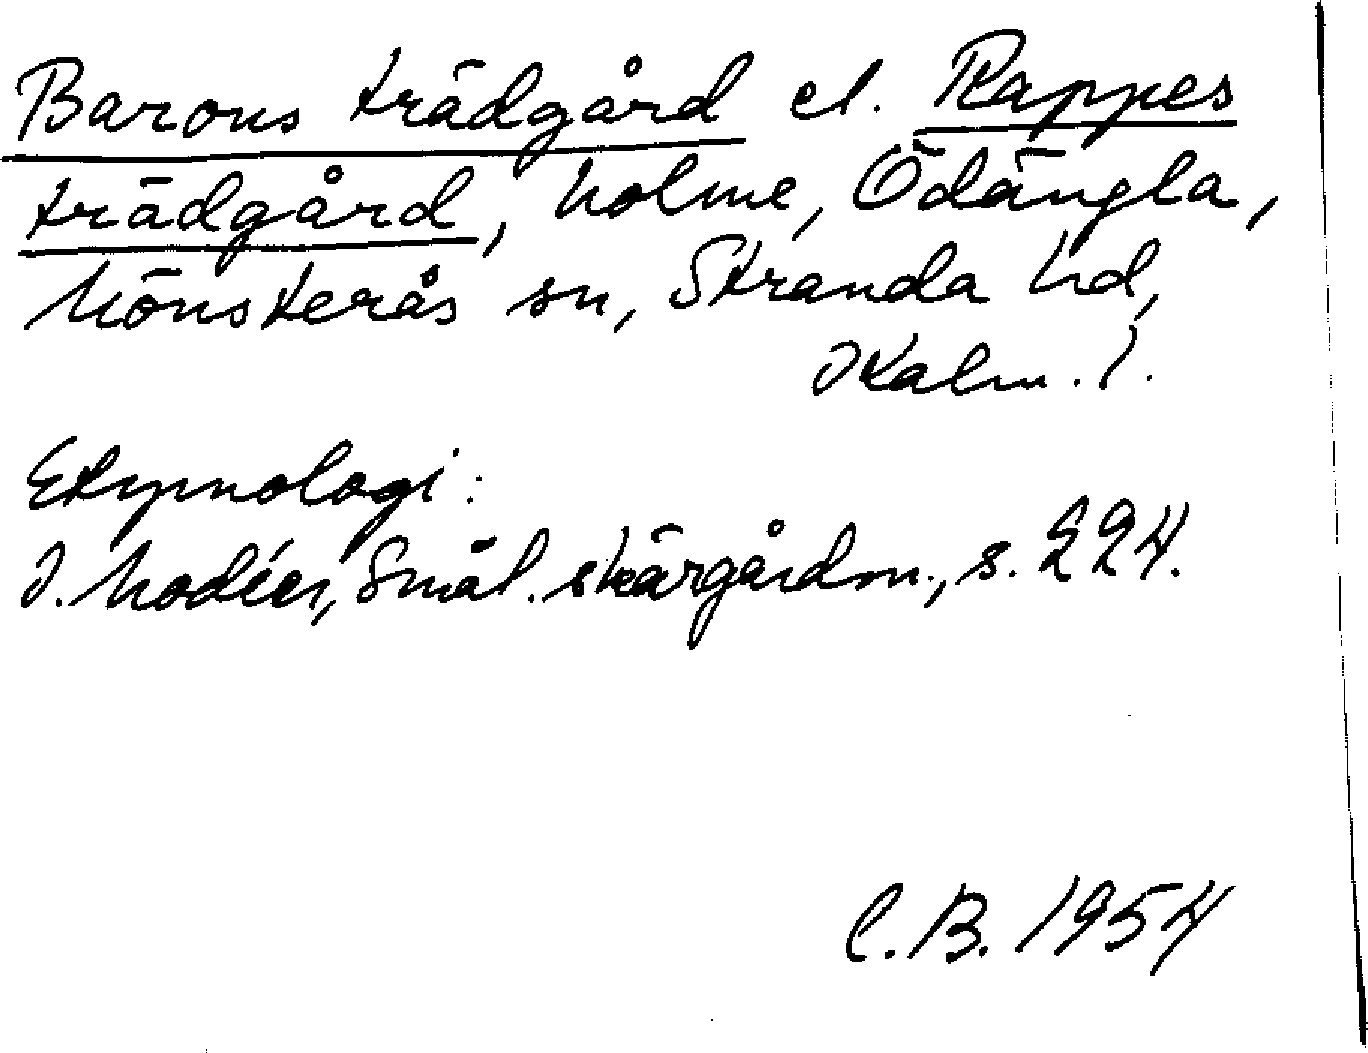 Barons trädgård el. Rappes
trädgård, holme, Ödängla,
Mönsterås sn, Stranda hd,
Kalm. l.
Etymologi:
I. Modéer, Smål. skärgårdsn., s. 224.
C.B. 1954